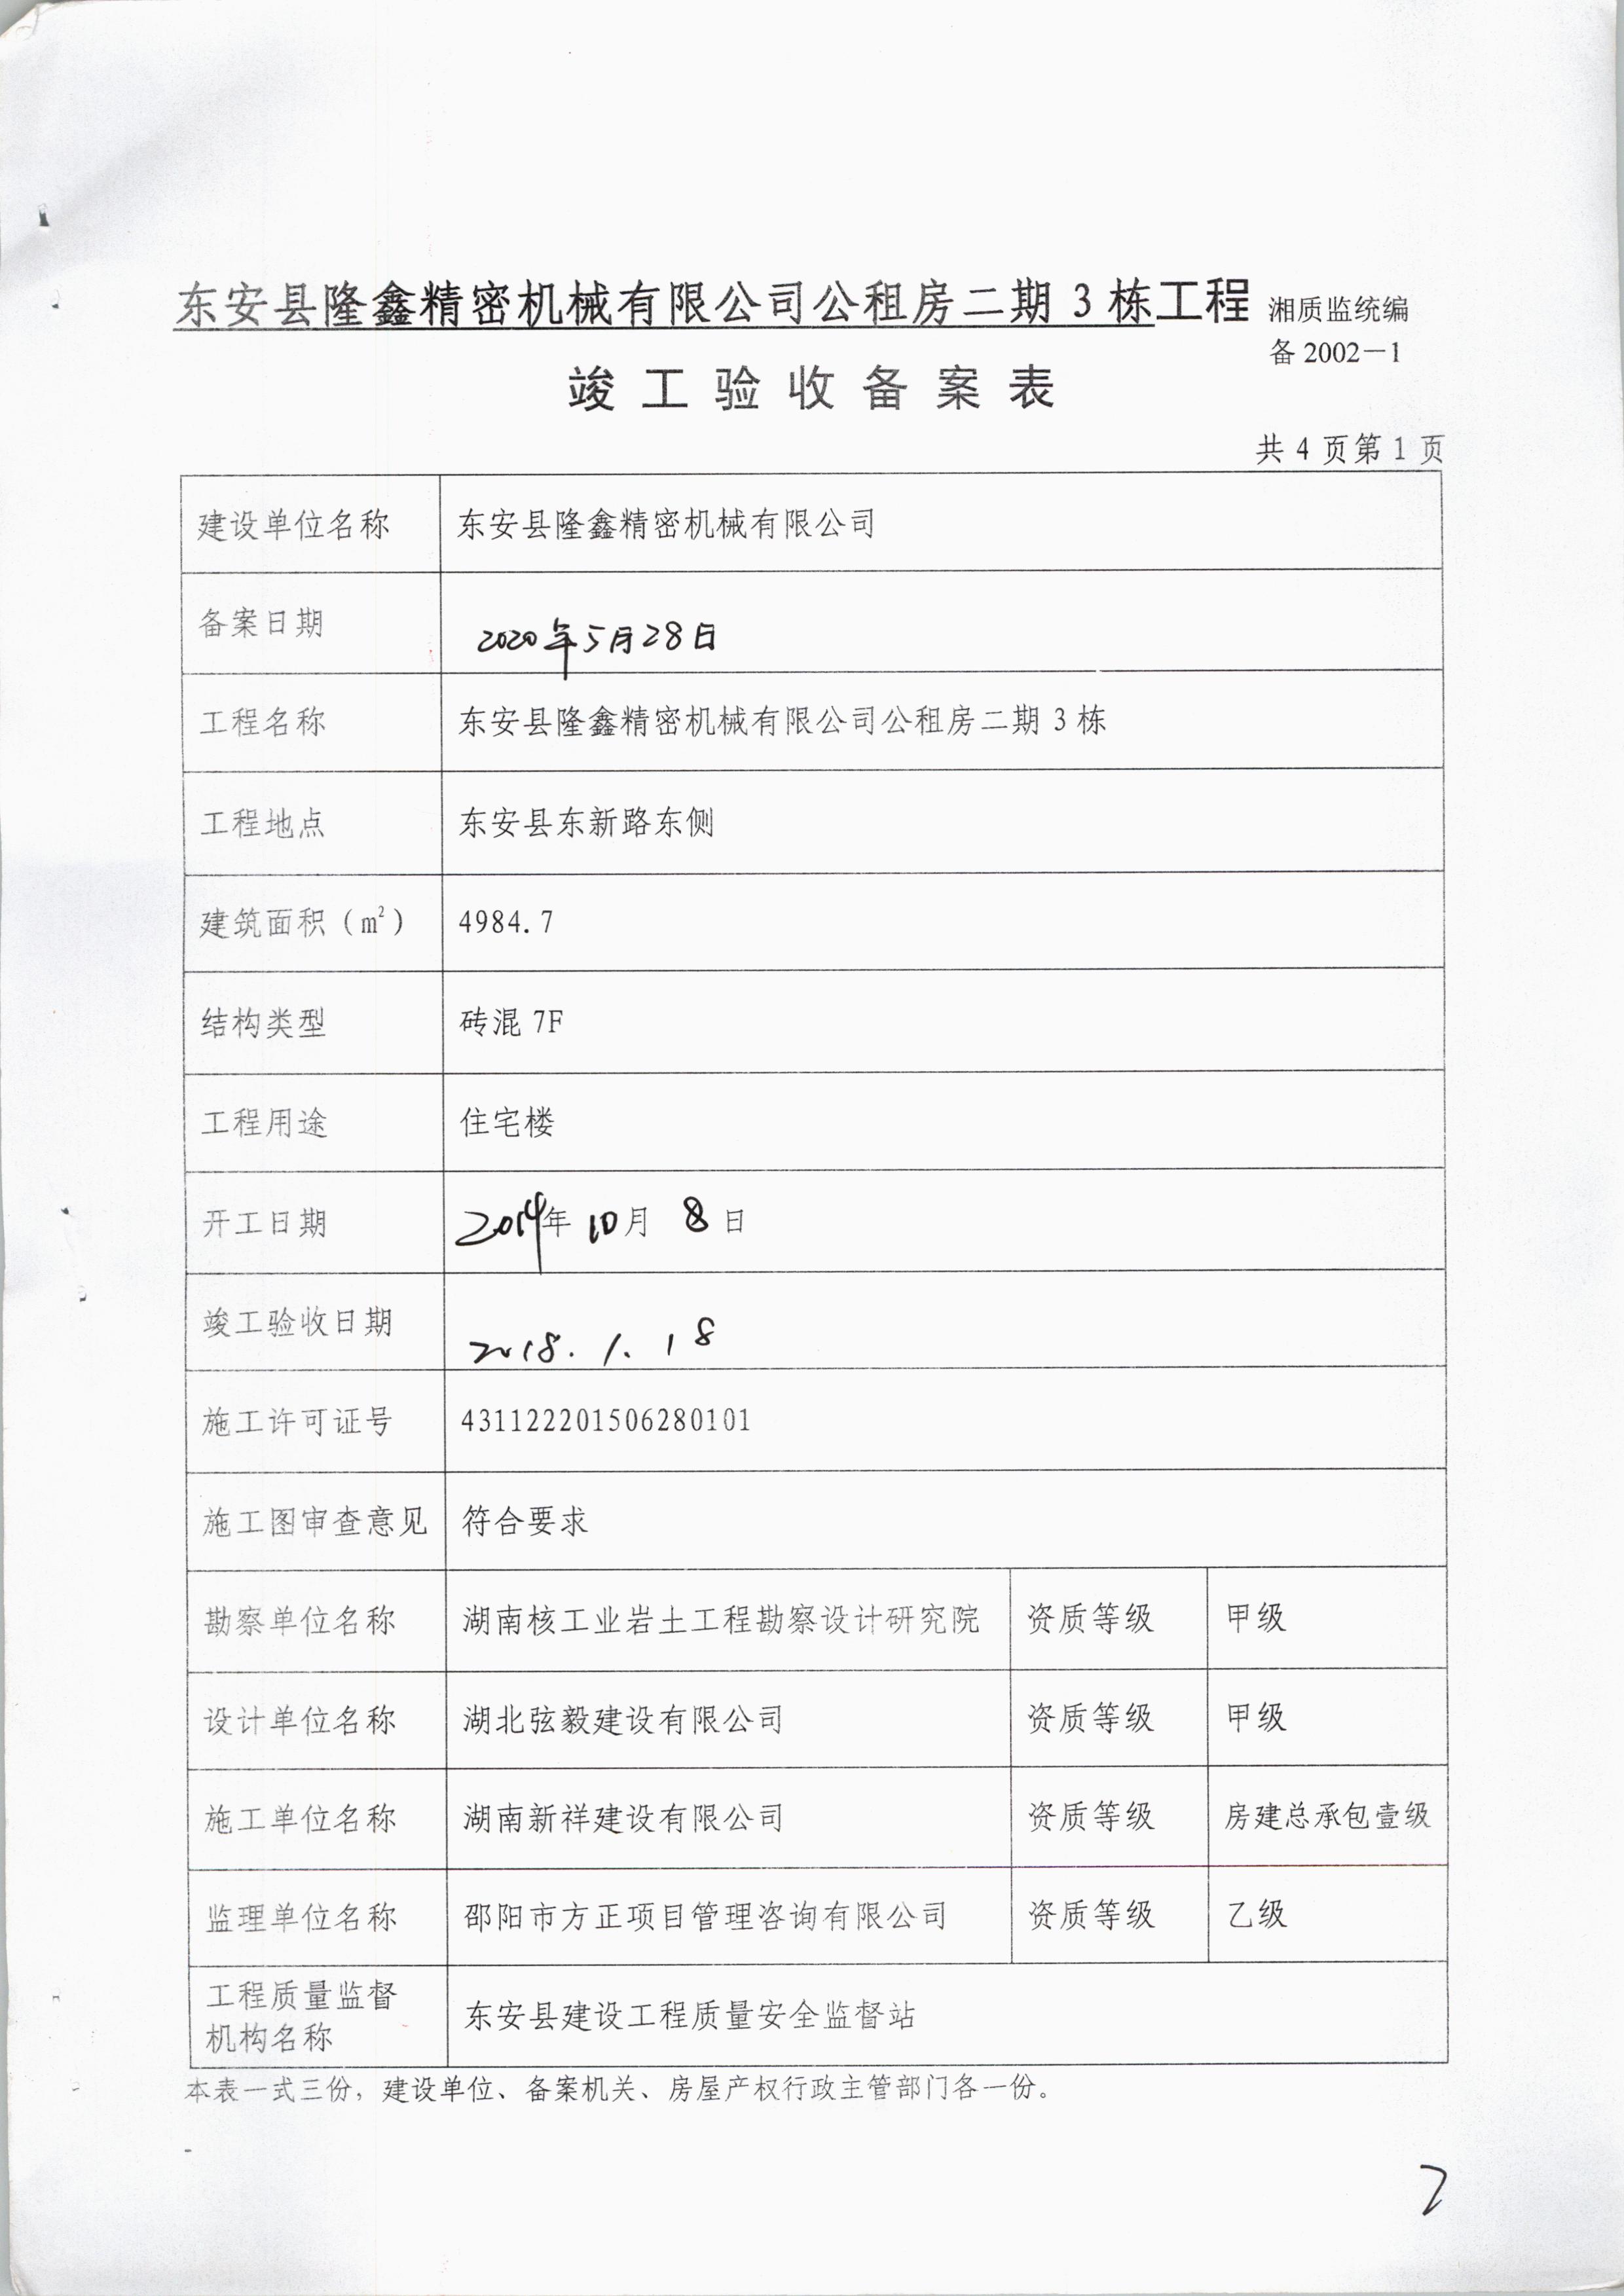 东安县隆鑫精密机械有限公司公租房二期 3 栋工程 湘质监统编
备 2002－1
竣工验收备案表
共 4 页第 1 页
建设单位名称 东安县隆鑫精密机械有限公司
备案日期 2020年5月28日
工程名称 东安县隆鑫精密机械有限公司公租房二期 3 栋
工程地点 东安县东新路东侧
建筑面积（m²） 4984.7
结构类型 砖混 7F
工程用途 住宅楼
开工日期 2014年 10月 8日
竣工验收日期 2018. 1. 18
施工许可证号 431122201506280101
施工图审查意见 符合要求
勘察单位名称 湖南核工业岩土工程勘察设计研究院 资质等级 甲级
设计单位名称 湖北弦毅建设有限公司 资质等级 甲级
施工单位名称 湖南新祥建设有限公司 资质等级 房建总承包壹级
监理单位名称 邵阳市方正项目管理咨询有限公司 资质等级 乙级
工程质量监督
机构名称 东安县建设工程质量安全监督站
本表一式三份，建设单位、备案机关、房屋产权行政主管部门各一份。